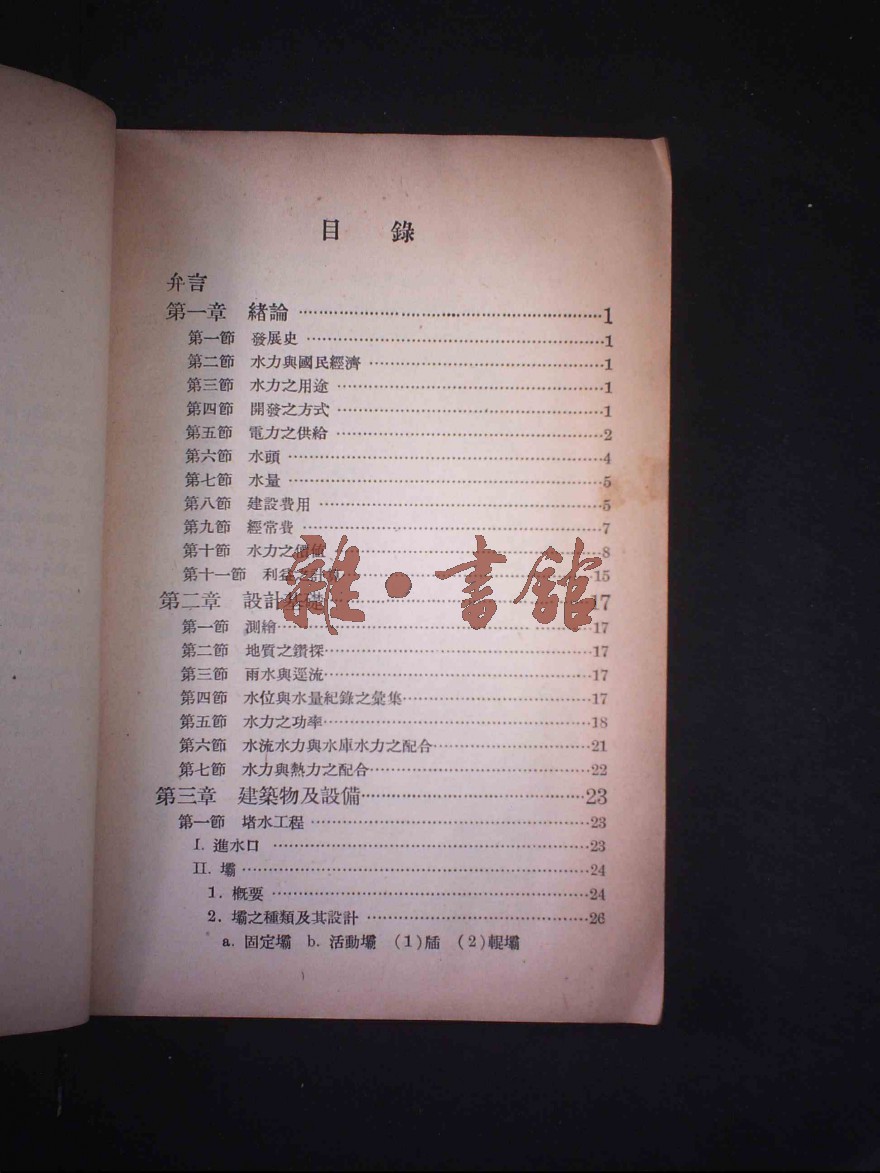 目錄
弁言
第一章 緒論 1
第一節 發展史 1
第二節 水力與國民經濟 1
第三節 水力之用途 1
第四節 開發之方式 1
第五節 電力之供給 2
第六節 水頭 4
第七節 水量 5
第八節 建設費用 5
第九節 經常費 7
第十節 水力之價值 8
第十一節 利益之計算 15
第二章 設計基礎 17
第一節 測繪 17
第二節 地質之鑽探 17
第三節 雨水與逕流 17
第四節 水位與水量紀錄之彙集 17
第五節 水力之功率 18
第六節 水流水力與水庫水力之配合 21
第七節 水力與熱力之配合 22
第三章 建築物及設備 23
第一節 堵水工程 23
I. 進水口 23
II. 壩 24
1. 概要 24
2. 壩之種類及其設計 26
a. 固定壩 b. 活動壩 (1) (2)輥壩
雜·書館